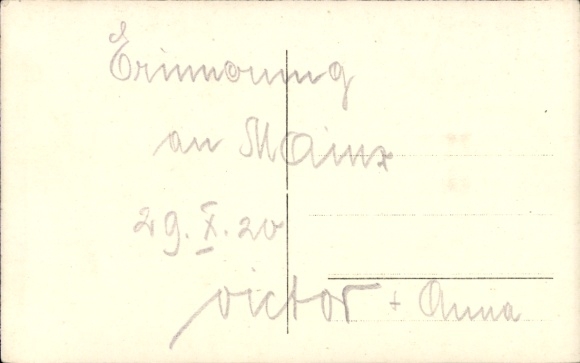 Erinnerung
an Mainz
29. X. 20
Victor + Anna